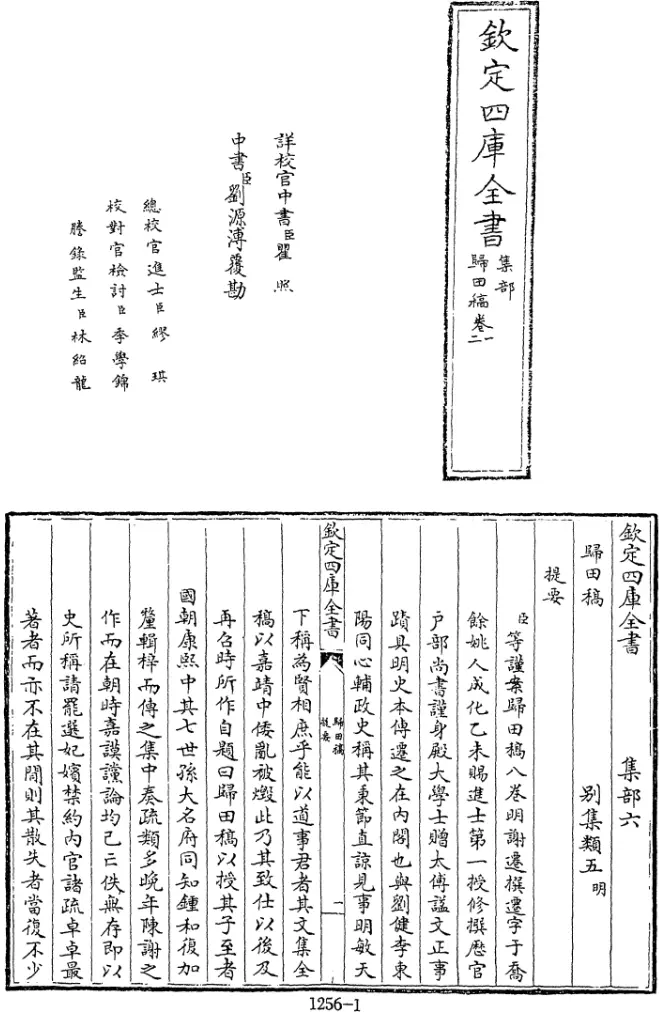 欽定四庫全書
集部
歸田稿卷一
二
詳校官中書臣瞿照
中書臣劉源溥覆勘
總校官進士臣繆琪
校對官檢討臣季學錦
謄錄監生臣林紹龍
欽定四庫全書 集部六
歸田稿 别集類五明
提要
臣等謹案歸田稿八卷明謝遷撰遷字于喬
餘姚人成化乙未賜進士第一授修撰歷官
户部尚書謹身殿大學士贈太傅諡文正事
蹟具明史本傳遷之在内閣也與劉健李東
陽同心輔政史稱其秉節直諒見事明敏天
欽定四庫全書
歸田稿
提要
一
下稱為賢相庶乎能以道事君者其文集全
稿以嘉靖中倭亂被燬此乃其致仕以後及
再召時所作自題曰歸田稿以授其子至者
國朝康熙中其七世孫大名府同知鍾和復加
釐輯梓而傳之集中奏疏類多晚年陳謝之
作而在朝時嘉謨讜論均已亡佚無存即以
史所稱請罷選妃嬪禁約内官諸疏卓卓最
著者而亦不在其間則其散失者當復不少
1256-1